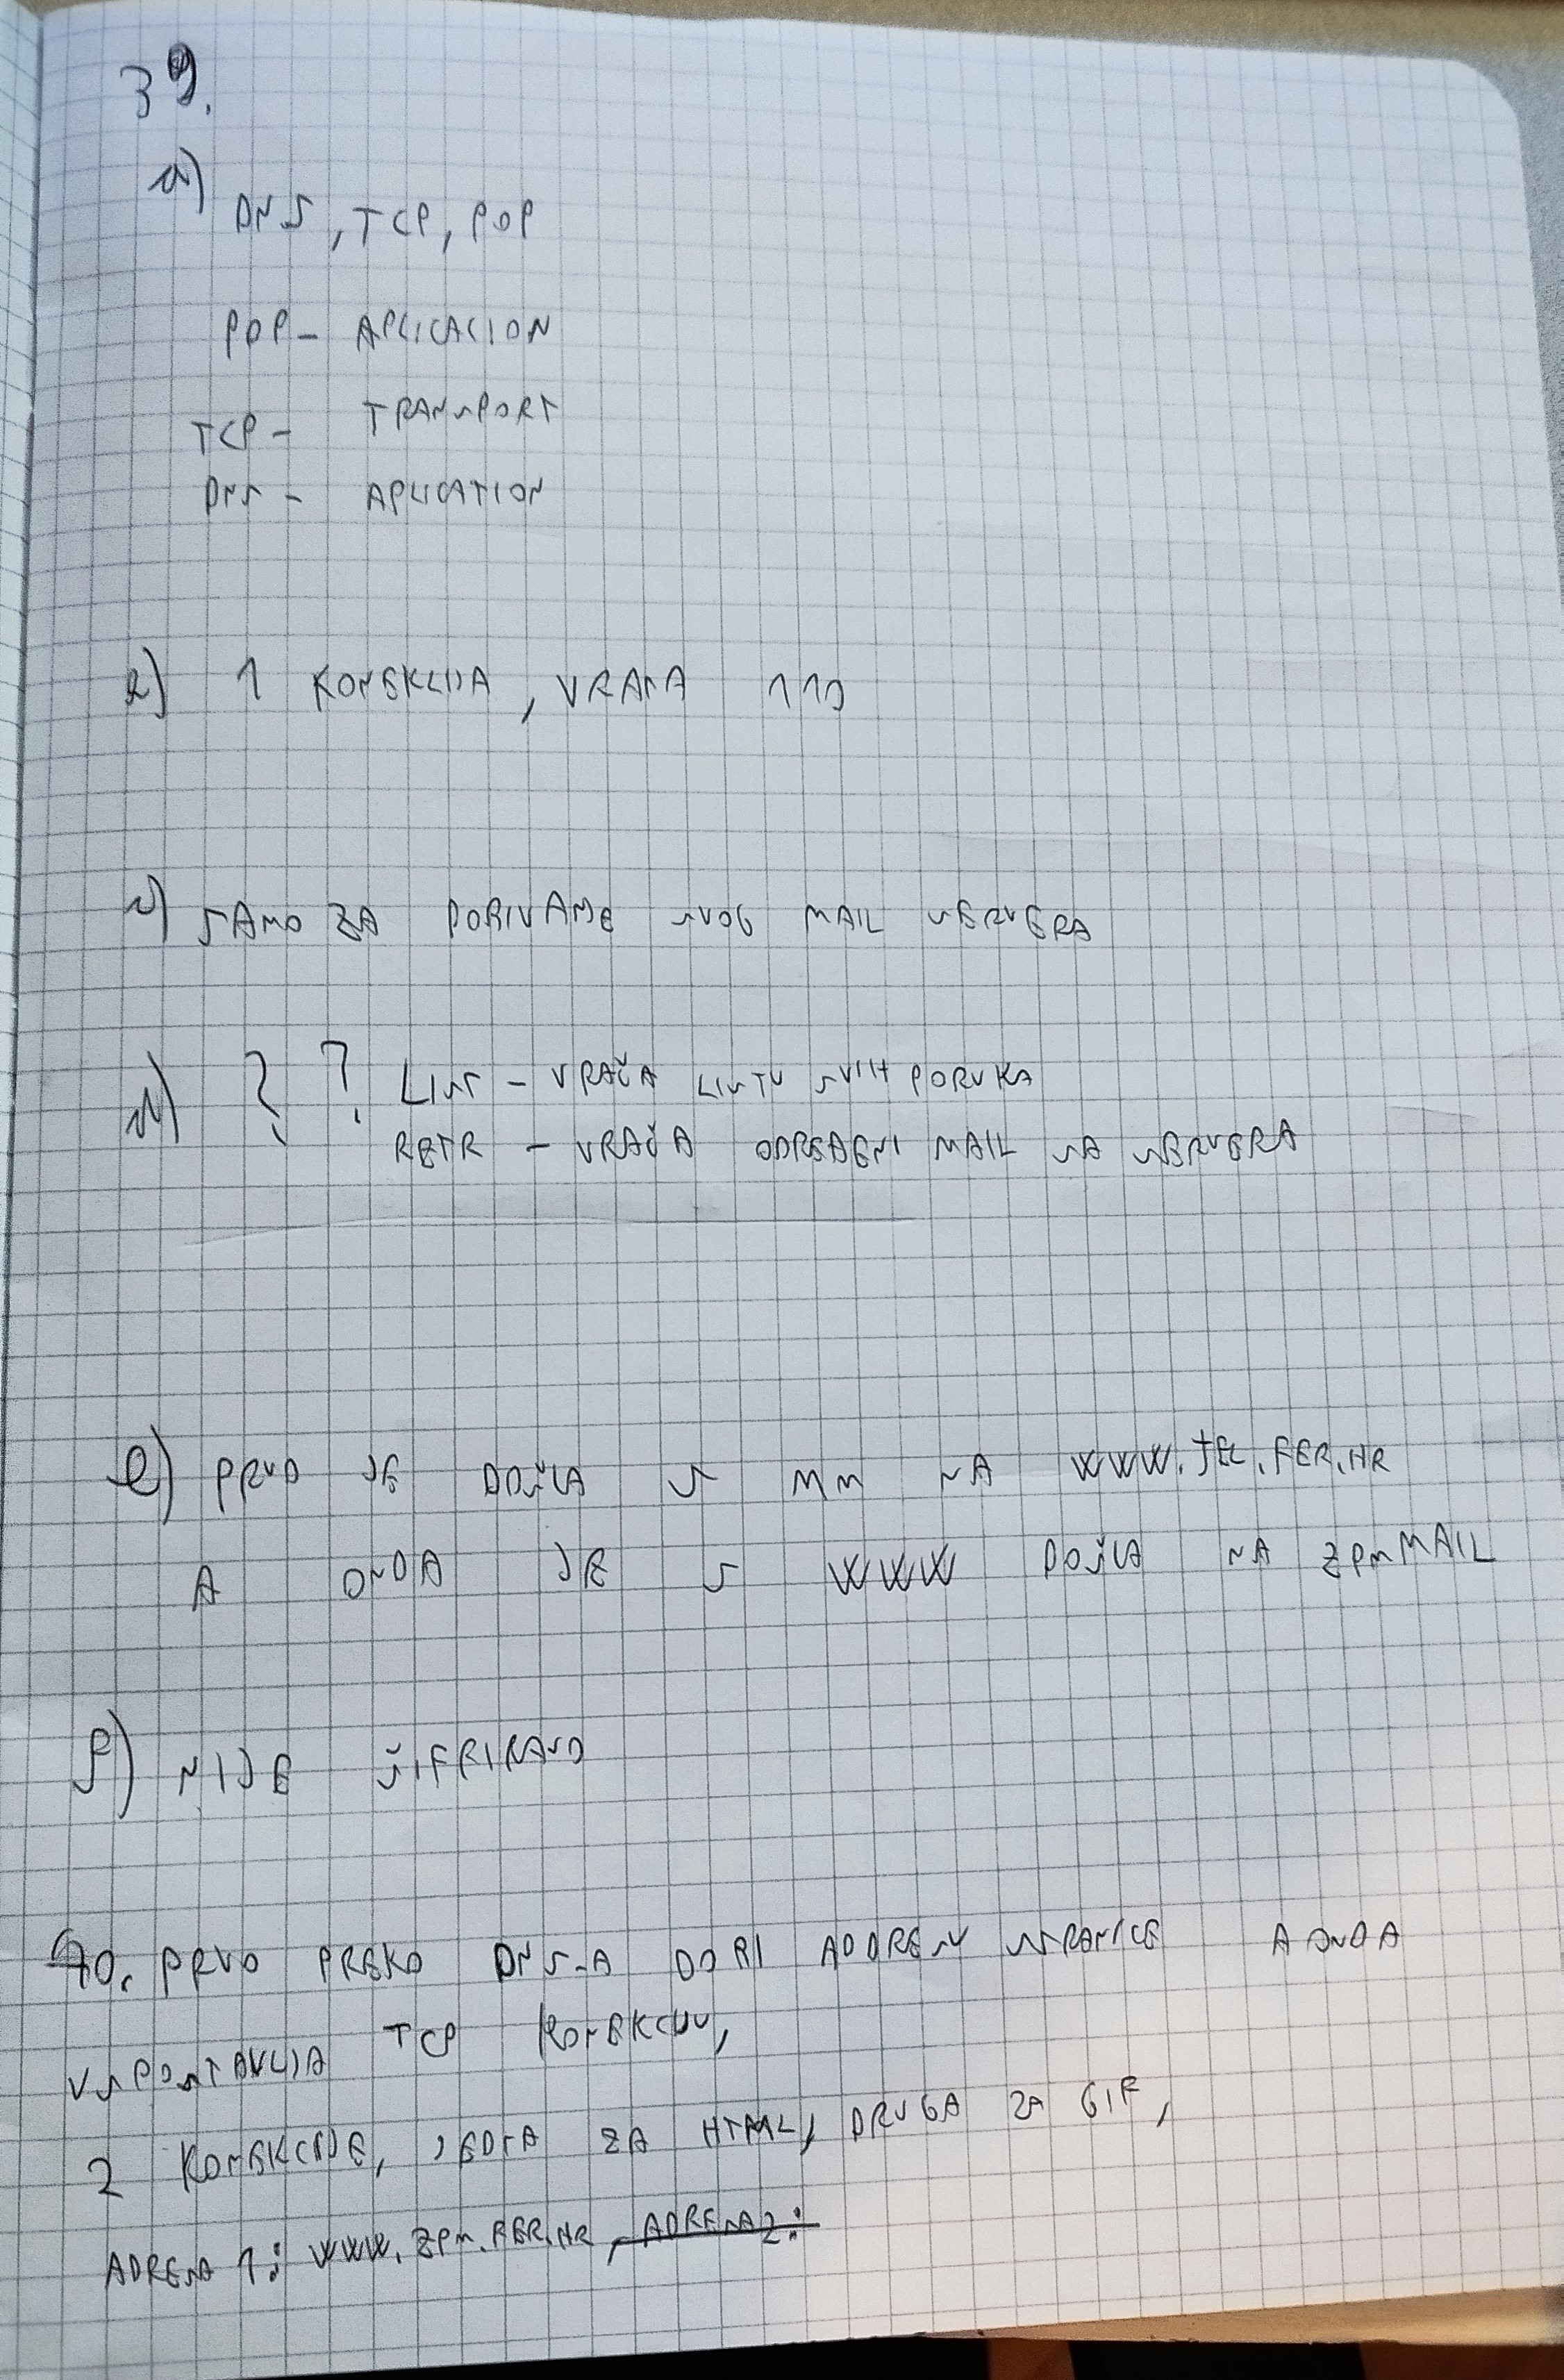 39.
a)
DNS, TCP, POP
POP - APLICACION
TCP - TRANSPORT
DNS - APLICATION
b) 1 KONEKCIJA, VRATA 110
c) SAMO ZA DOBIVANJE SVOG MAIL SERVERA
d) ? ? LIST - VRAČA LISTU SVIH PORUKA
RETR - VRAČA ODREĐENI MAIL SA SERVERA
e) PRVO JE DOŠLA S MM NA WWW.TEL.FER.HR
A ONDA JE S WWW DOŠLA NA ZPMMAIL
f) NIJE ŠIFRIRANO
40. PRVO PREKO DNS-A DOBI ADDRESU STRANICE A ONDA
USPOSTAVLJA TCP KONEKCIJU,
2 KONEKCIJE, JEDNA ZA HTML, DRUGA ZA GIF,
ADRESA 1: WWW.ZPM.FER.HR, ADRESA 2: